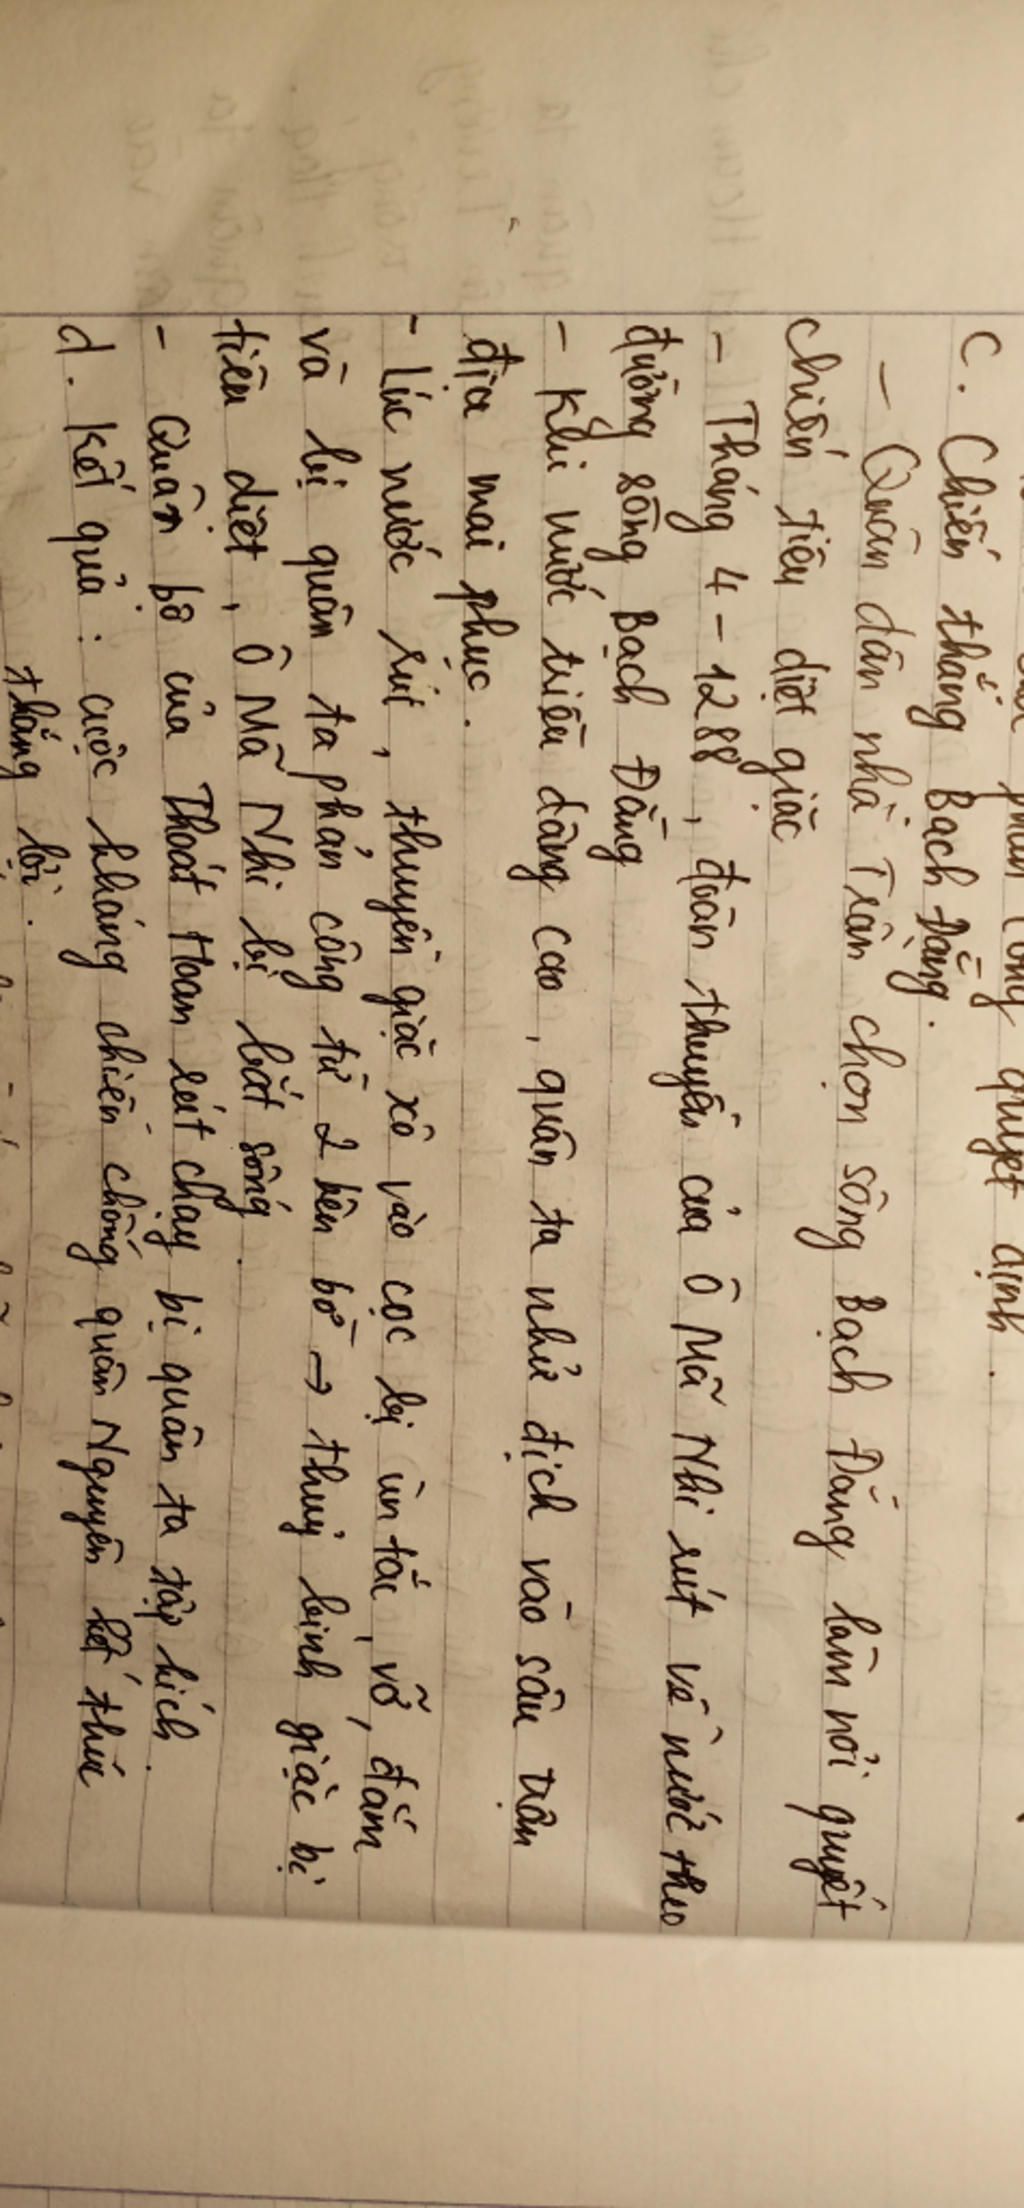 công quyết định.
C. Chiến thắng Bạch Đằng.
- Quân dân nhà Trần chọn sông Bạch Đằng làm nơi quyết
chiến tiêu diệt giặc
- Tháng 4 - 1288, đoàn thuyền của Ô Mã Nhi rút về nước theo
đường sông Bạch Đằng
- Khi nước triều dâng cao, quân ta nhử địch vào sâu trận
địa mai phục.
- Lúc nước rút, thuyền giặc xô vào cọc bị ùn tắc, vỡ, đắm
và bị quân ta phản công từ 2 bên bờ → thuỷ binh giặc bị
tiêu diệt, Ô Mã Nhi bị bắt sống.
- Quân bộ của Thoát Hoan rút chạy bị quân ta tập kích.
d. Kết quả: cuộc kháng chiến chống quân Nguyên kết thúc
thắng lợi.